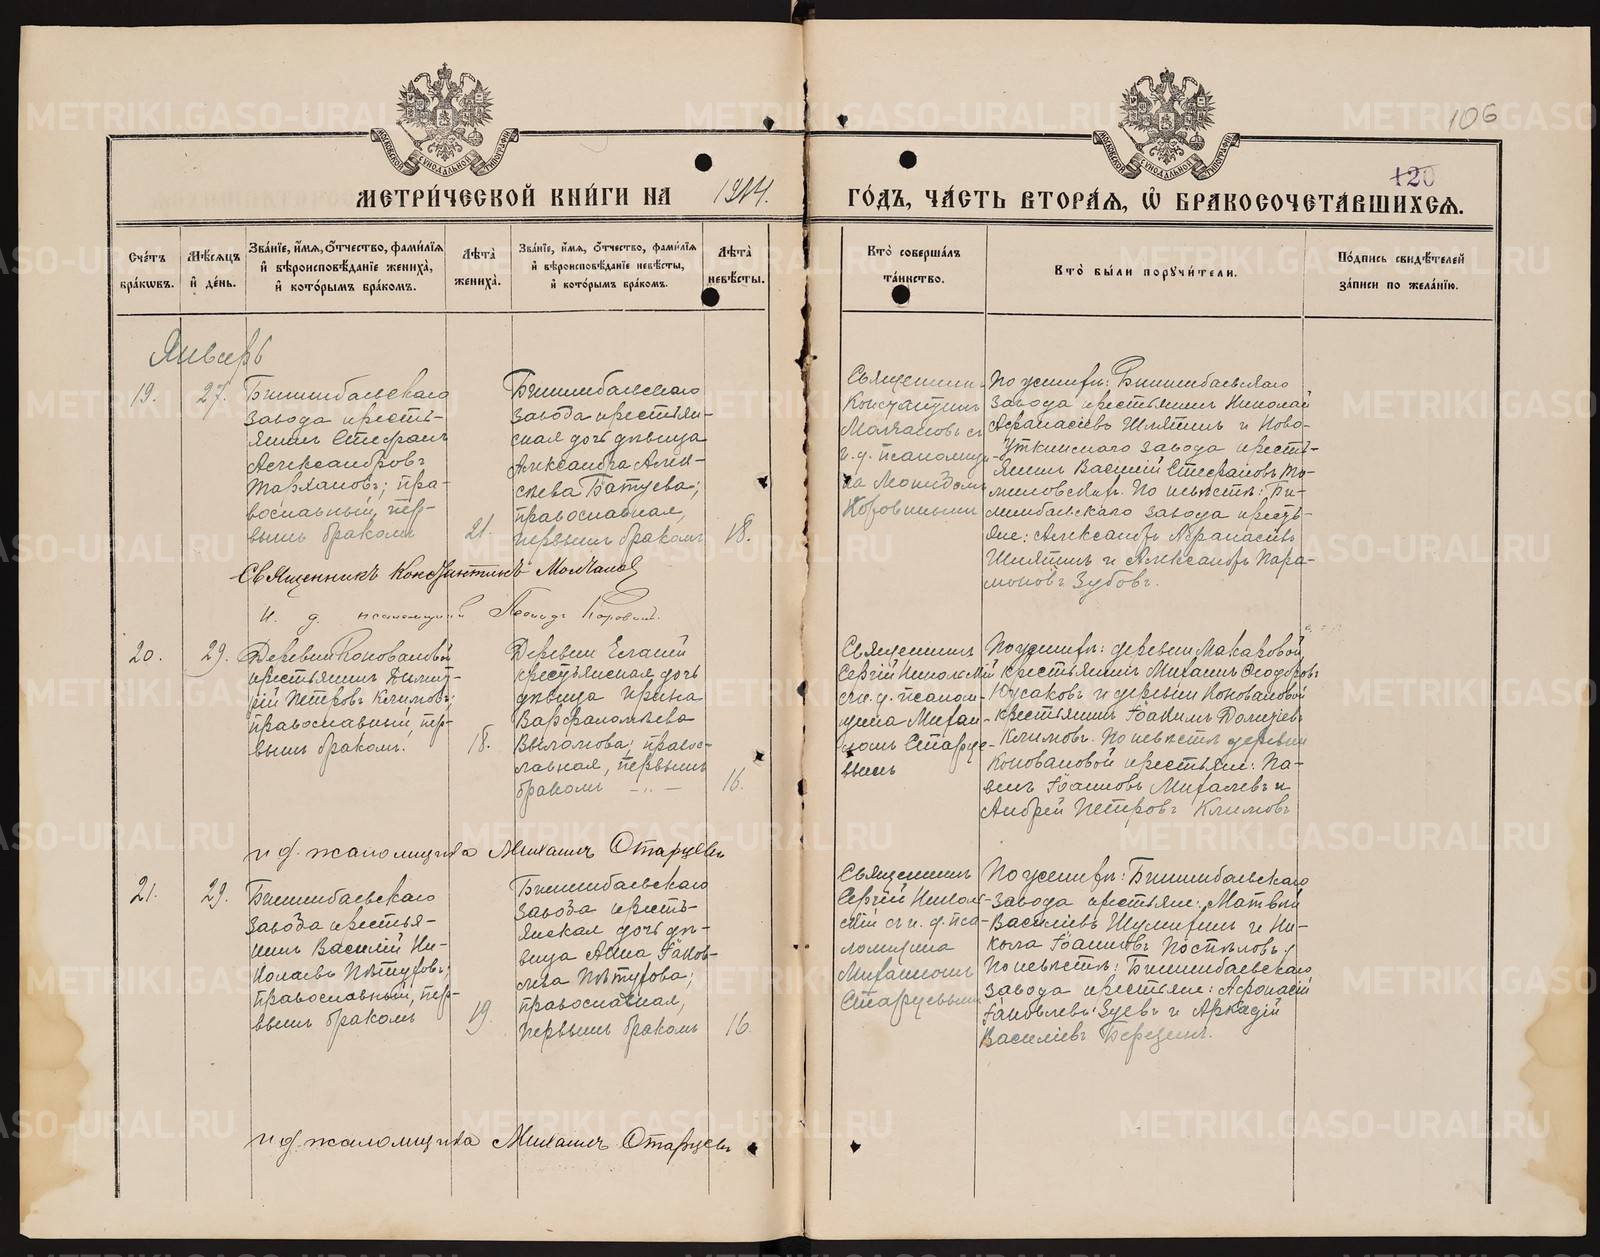 106
120
МОСКОВСКОЙ СѴНОДАЛЬНОЙ ТИПОГРАФІИ
МОСКОВСКОЙ СѴНОДАЛЬНОЙ ТИПОГРАФІИ
МЕТРИ́ЧЕСКОЙ КНИ́ГИ НА 1914. ГО́ДЪ, ЧА́СТЬ ВТОРА́Я, Ѡ҆ БРАКОСОЧЕТА́ВШИХСЯ.
Сче́тъ
бра́кѡвъ.
Мѣ́сѧцъ
и҆ де́нь.
Зва́нїе, и҆́мѧ, о҆́тчество, фами́лїѧ
и҆ вѣроисповѣ́данїе жениха̀,
и҆ кото́рымъ бра́комъ.
Лѣ́та
жениха̀.
Зва́нїе, и҆́мѧ, о҆́тчество, фами́лїѧ
и҆ вѣроисповѣ́данїе невѣ́сты,
и҆ кото́рымъ бра́комъ.
Лѣ́та
невѣ́сты.
Кто̀ соверша́лъ
та́инство.
Кто̀ бы́ли порꙋчи́тели.
По́дпись свидѣ́телей
за́писи по жела́нїю.
Январь
19.
27.
Билимбаевскаго
завода кресть-
янинъ Стефанъ
Александровъ
Тарханов; пра-
вославный, пер-
вымъ бракомъ
21.
Билимбаевскаго
завода крестьян-
ская дочь девица
Александра Алек-
сѣева Батуева;
православная,
первымъ бракомъ
18.
Священник
Константинъ
Молчановъ съ
и. д. псаломщи-
ка Леонидомъ
Коровинымъ
По женихѣ: Билимбаевскаго
завода крестьянинъ Николай
Афанасіевъ Шляпинъ и Ново-
Уткинскаго завода кресть-
янинъ Василій Стефановъ То-
миловскихъ. По невѣстѣ: Би-
лимбаевскаго завода кресть-
яне: Александръ Афанасіевъ
Шляпинъ и Александръ Пара-
моновъ Зубовъ.
Священникъ Константинъ Молчанов
И. д. псаломщика Леонидъ Коровинъ.
20.
29.
Деревни Коноваловой
крестьянинъ Дими-
трій Петровъ Климовъ;
православный, пер-
вымъ бракомъ.
18.
Деревни Еланей
крестьянская дочь
дѣвица Ирина
Варфаломѣева
Выломова; правос-
лавная, первымъ
бракомъ
16.
Священникъ
Сергій Никольскій
съ и. д. псалом-
щика Михаи-
ломъ Старце-
вымъ
По женихѣ: деревни Макаровой
крестьянинъ Михаилъ Феодоровъ
Юсаковъ и деревни Коноваловой
крестьянинъ Іоакимъ
Климовъ. По невѣстѣ деревни
Коноваловой крестьяне: Па-
велъ Іоанновъ Михалевъ и
Андрей Петровъ Климовъ
и д. псаломщика Михаилъ Старцевъ
21.
29.
Билимбаевскаго
завода крестья-
нинъ Василій Ни-
колаевъ Пѣтуховъ;
православный, пер-
вымъ бракомъ
19.
Билимбаевскаго
завода кресть-
янская дочь дѣ-
вица Анна Іаков-
лева Пѣтухова;
православная,
первымъ бракомъ
16.
Священникъ
Сергій Николь-
скій съ и. д. пса-
ломщика
Михаиломъ
Старцевымъ
По женихѣ: Билимбаевскаго
завода крестьяне: Матвѣй
Василіевъ Шумихинъ и Ни-
кола Іоанновъ Поспѣловъ;
По невѣстѣ: Билимбаевскаго
завода крестьяне: Афонасій
Іаковлевъ Зуевъ и Аркадій
Василіевъ Березинъ.
и д. псаломщика Михаилъ Старцевъ
METRIKI.GASO-URAL.RU